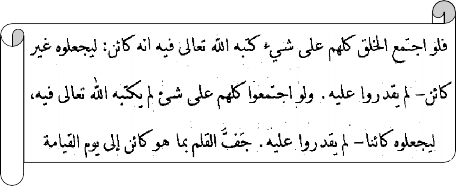 فلو اجتمع الخلق كلهم على شيء كتبه الله تعالى فيه انه كائن: ليجعلوه غير
كائن- لم يقدروا عليه. ولو اجتمعوا كلهم على شئ لم يكتبه الله تعالى فيه،
ليجعلوه كائنا- لم يقدروا عليه. جَفَّ القلم بما هو كائن إلى يوم القيامة